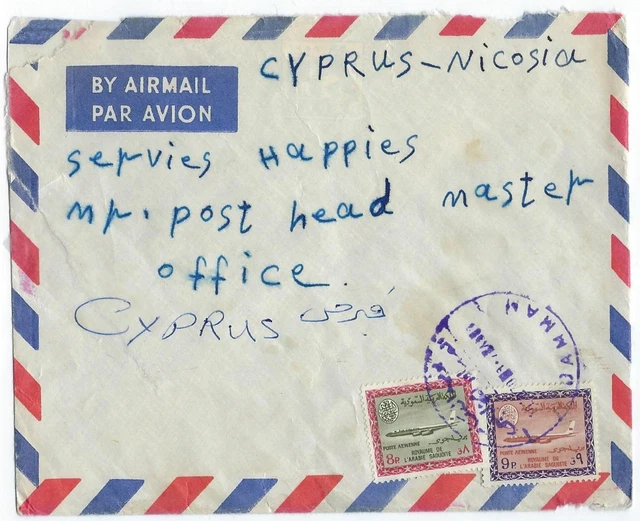 CYPRUS-Nicosia
BY AIRMAIL
PAR AVION
servies Happies
Mr. post head master
office.
CYPRUS قبرص
DAMMAM
المملكة العربية السعودية
بريد جوي
POSTE AERIENNE
ROYAUME DE
L'ARABIE SAOUDITE
8P ٨ق
المملكة العربية السعودية
بريد جوي
POSTE AERIENNE
ROYAUME DE
L'ARABIE SAOUDITE
9P ٩ق